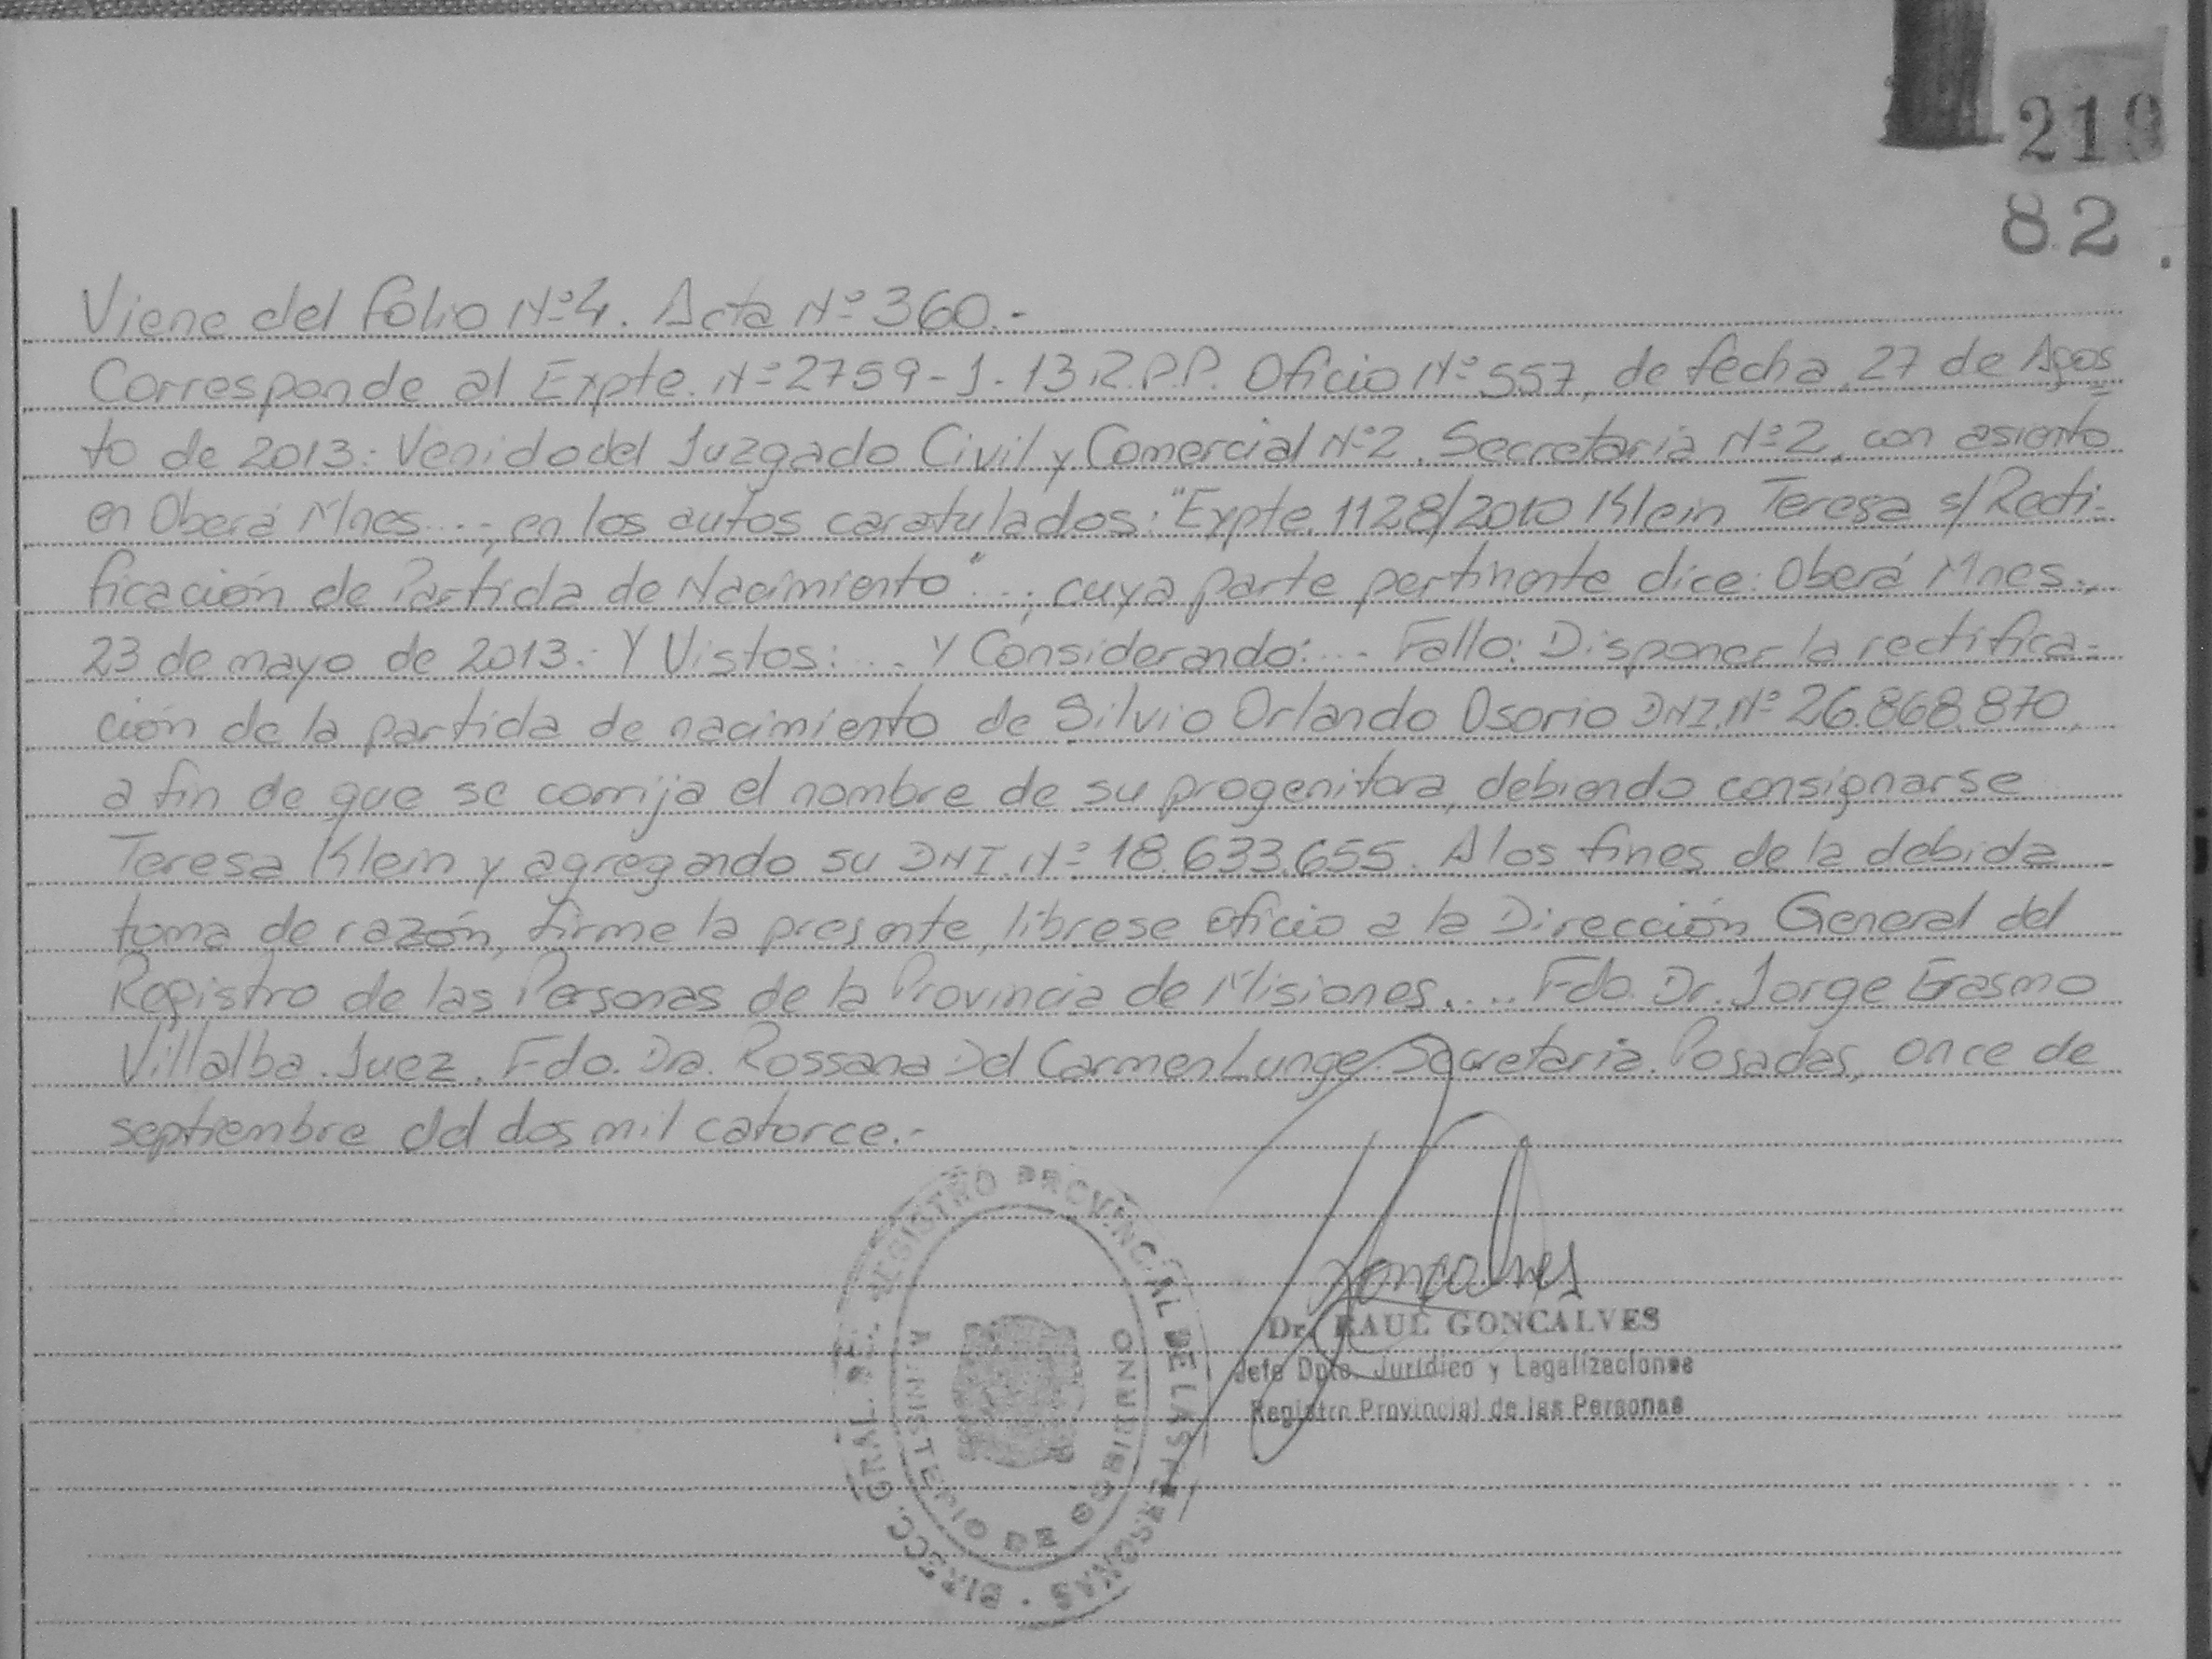 219
82
Viene del folio Nº 4. Acta Nº 360.-
Corresponde al Expte. Nº 2759-J-13 R.P.P. Oficio Nº 557, de fecha, 27 de Agos
to de 2013: Venido del Juzgado Civil y Comercial Nº 2, Secretaria Nº 2, con asiento
en Oberá Mnes...-, en los autos caratulados: "Expte. 1128/2010 Klein Teresa s/ Recti-
ficación de Partida de Nacimiento"...; cuya parte pertinente dice: Oberá Mnes.,
23 de mayo de 2013: Y Vistos:... Y Considerando:... Fallo: Disponer la rectifica-
ción de la partida de nacimiento de Silvio Orlando Osorio DNI. Nº 26.868.870,
a fin de que se corrija el nombre de su progenitora, debiendo consignarse
Teresa Klein y agregando su DNI. Nº 18.633.655. A los fines de la debida
toma de razón, firme la presente, librese oficio a la Dirección General del
Registro de las Personas de la Provincia de Misiones.... Fdo. Dr. Jorge Erasmo
Villalba. Juez. Fdo. Dra. Rossana Del Carmen Lunge. Secretaria. Posadas, once de
septiembre del dos mil catorce.-
DIRECC. GRAL. DEL REGISTRO PROVINCIAL DE LAS PERSONAS
MINISTERIO DE GOBIERNO
Goncalves
Dr. RAUL GONCALVES
Jefe Dpto. Jurídico y Legalizaciones
Registro Provincial de las Personas